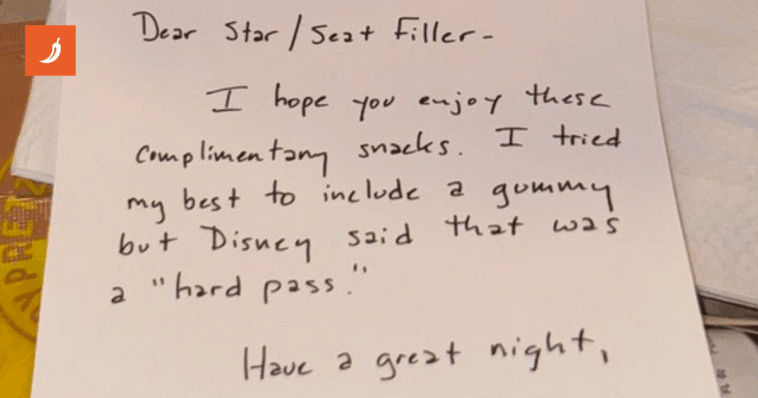 Dear Star/Seat Filler-
I hope you enjoy these
complimentary snacks. I tried
my best to include a gummy
but Disney said that was
a "hard pass."
Have a great night,